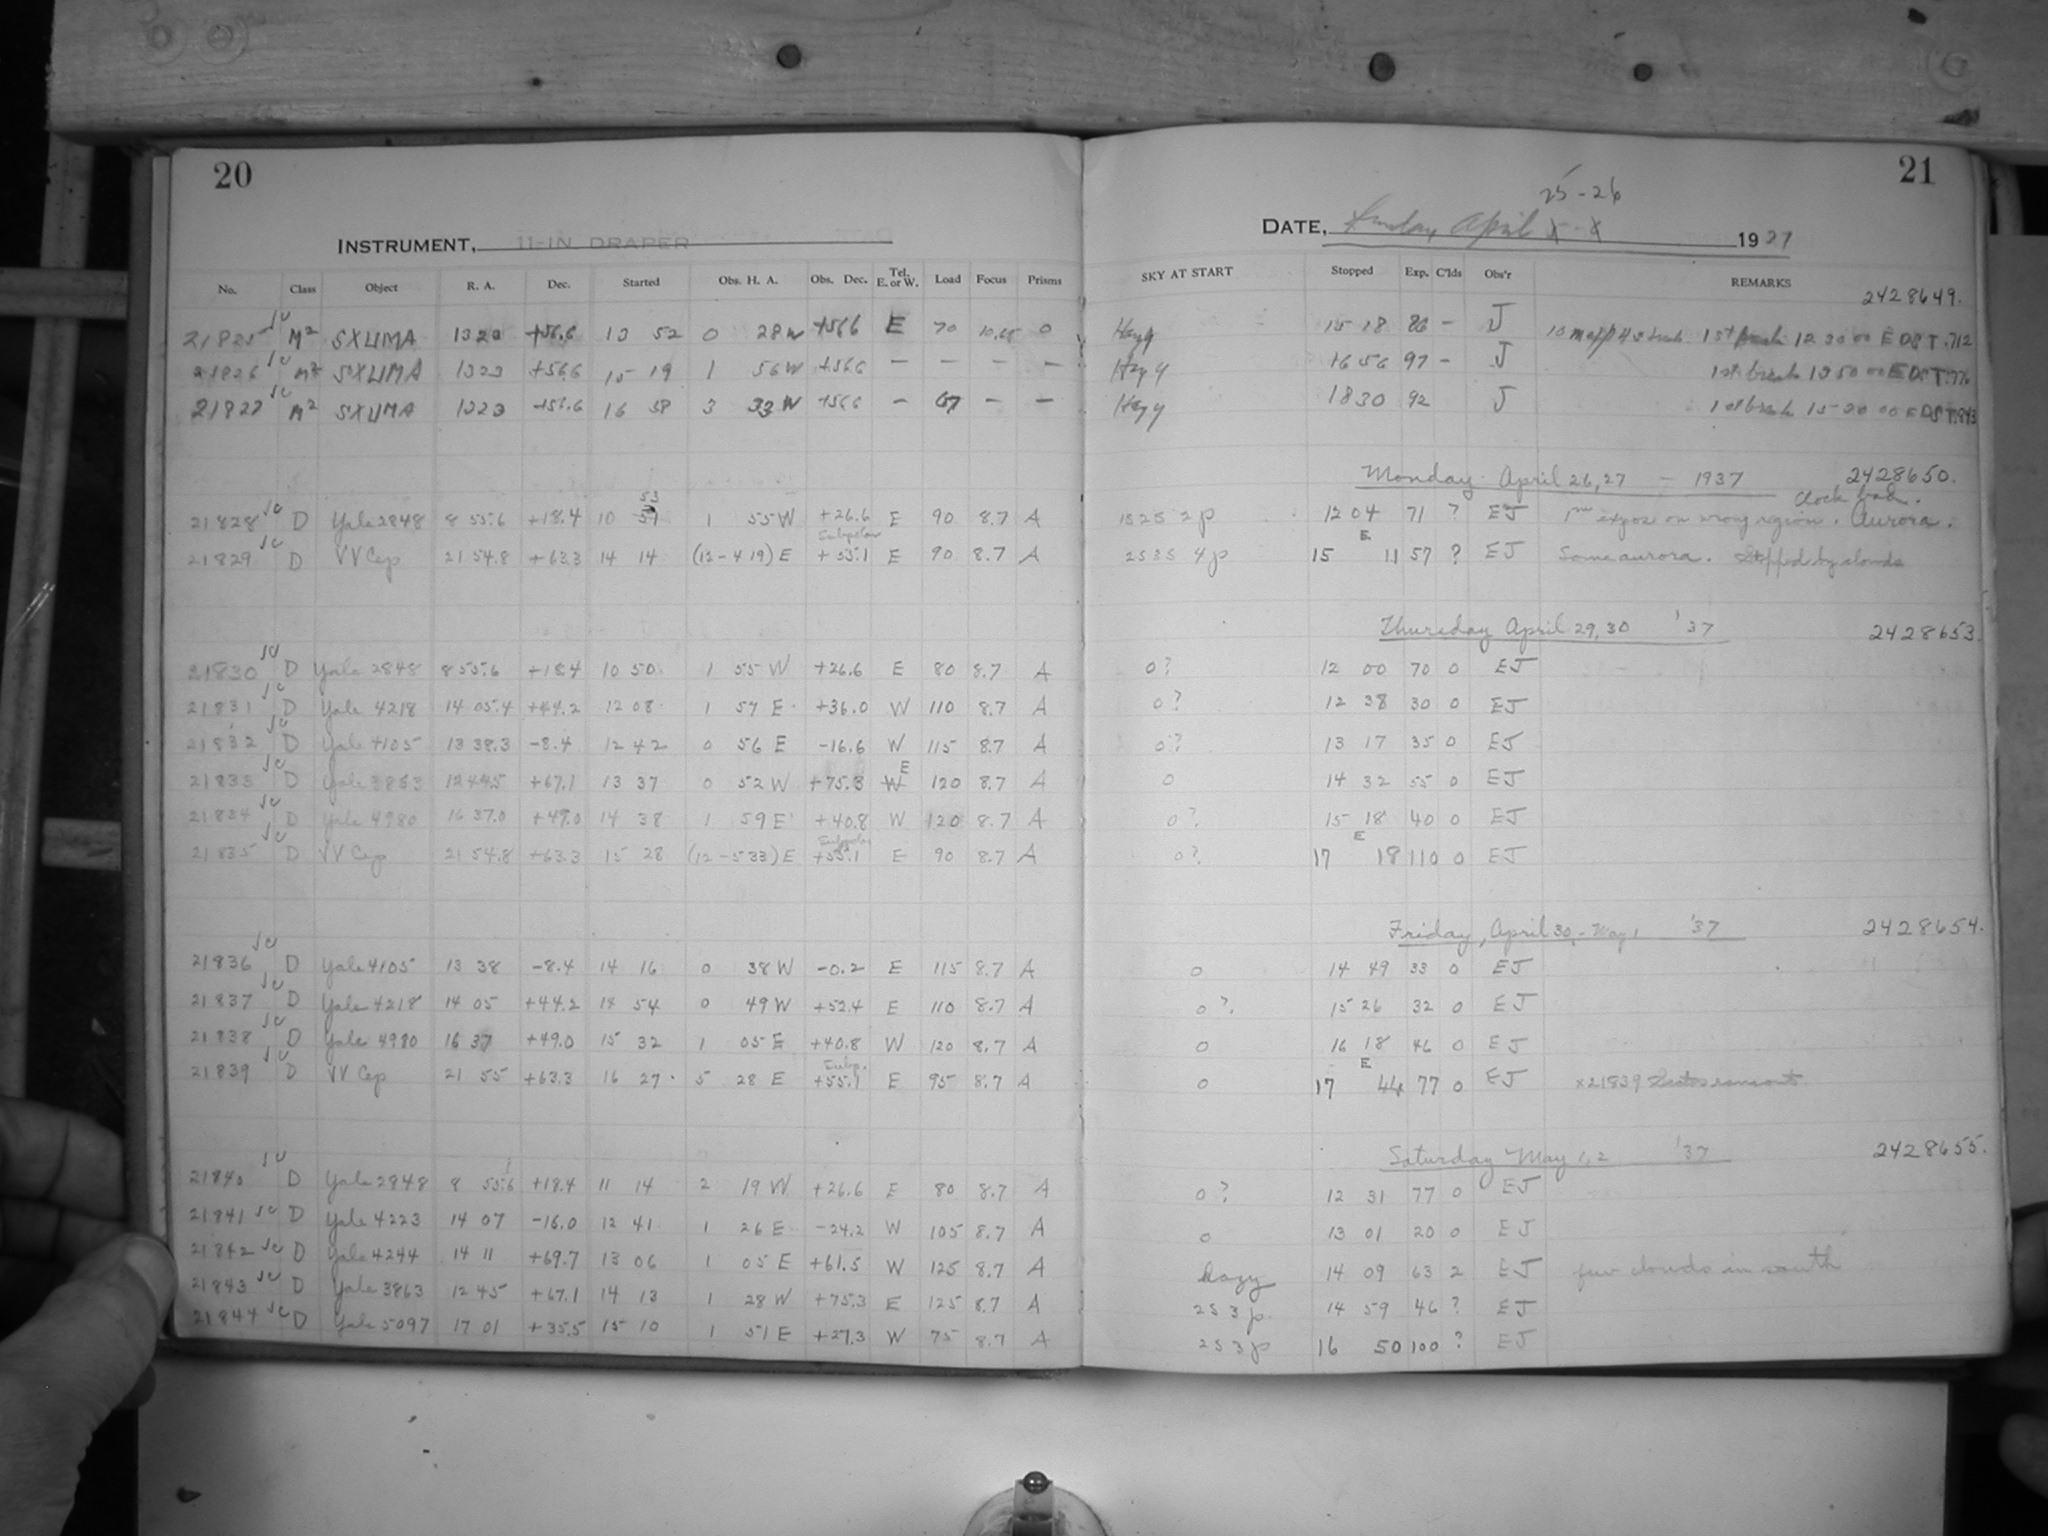 20
21
25-26
INSTRUMENT, 11-IN DRAPER
DATE, Sunday April 1937
No. Class Object R. A. Dec. Started Obs. H. A. Obs. Dec. Tel. E. or W. Load Focus Prisms SKY AT START Stopped Exp. C'lds Obs'r REMARKS
2428649.
21825 M2 SXUMA 1323 +56.6 13 52 0 28W +566 E 70 0 Hazy 15 18 86 - J 1st break 12 30 00 EDST .712
21826 M2 SXUMA 1323 +56.6 15 19 1 56W +566 - - - - Hazy 16 56 97 - J 1st break 13 50 00 EDST
21827 M2 SXUMA 1323 +56.6 16 58 3 33W +566 - 67 - - Hazy 1830 92 J 1st break 15-20 00 EDST
Monday April 26,27 - 1937 2428650.
Clock bad.
21828 D Yale 2848 8 55.6 +18.4 10 53 1 55W +26.6 E 90 8.7 A 1S2S 2p 12 04 71 ? EJ expos on wrong region. Aurora.
21829 D VV Cep 21 54.8 +63.3 14 14 (12-4 19) E Subpolar +55.1 E 90 8.7 A 2S3S 4p 15 E 11 57 ? EJ Some aurora. Stopped by clouds
Thursday April 29,30 '37 2428653.
21830 D Yale 2848 8 55.6 +18.4 10 50 1 55 W +26.6 E 80 8.7 A 0? 12 00 70 0 EJ
21831 D Yale 4218 14 05.4 +44.2 12 08 1 57 E +36.0 W 110 8.7 A 0? 12 38 30 0 EJ
21832 D Yale 4105 13 38.3 -8.4 12 42 0 56 E -16.6 W 115 8.7 A 0? 13 17 35 0 EJ
21833 D Yale 3863 12 44.5 +67.1 13 37 0 52 W +75.3 E 120 8.7 A 0 14 32 55 0 EJ
21834 D Yale 4980 16 37.0 +49.0 14 38 1 59 E +40.8 W 120 8.7 A 0? 15 18 40 0 EJ
21835 D VV Cep 21 54.8 +63.3 15 28 (12-5 33) E Subpolar +55.1 E 90 8.7 A 0? 17 E 18 110 0 EJ
Friday, April 30,-May 1 '37 2428654.
21836 D Yale 4105 13 38 -8.4 14 16 0 38 W -0.2 E 115 8.7 A 0 14 49 33 0 EJ
21837 D Yale 4218 14 05 +44.2 14 54 0 49 W +52.4 E 110 8.7 A 0? 15 26 32 0 EJ
21838 D Yale 4980 16 37 +49.0 15 32 1 05 E +40.8 W 120 8.7 A 0 16 18 46 0 EJ
21839 D VV Cep 21 55 +63.3 16 27 5 28 E Subp. +55.1 E 95 8.7 A 0 17 E 44 77 0 EJ x21839
Saturday May 1,2 '37 2428655.
21840 D Yale 2848 8 55.6 +18.4 11 14 2 19 W +26.6 E 80 8.7 A 0? 12 31 77 0 EJ
21841 D Yale 4223 14 07 -16.0 12 41 1 26 E -24.2 W 105 8.7 A 0 13 01 20 0 EJ
21842 D Yale 4244 14 11 +69.7 13 06 1 05 E +61.5 W 125 8.7 A hazy 14 09 63 2 EJ few clouds in south
21843 D Yale 3863 12 45 +67.1 14 13 1 28 W +75.3 E 125 8.7 A 2S 3p. 14 59 46 ? EJ
21844 D Yale 5097 17 01 +35.5 15 10 1 51 E +27.3 W 75 8.7 A 2S 3p 16 50 100 ? EJ